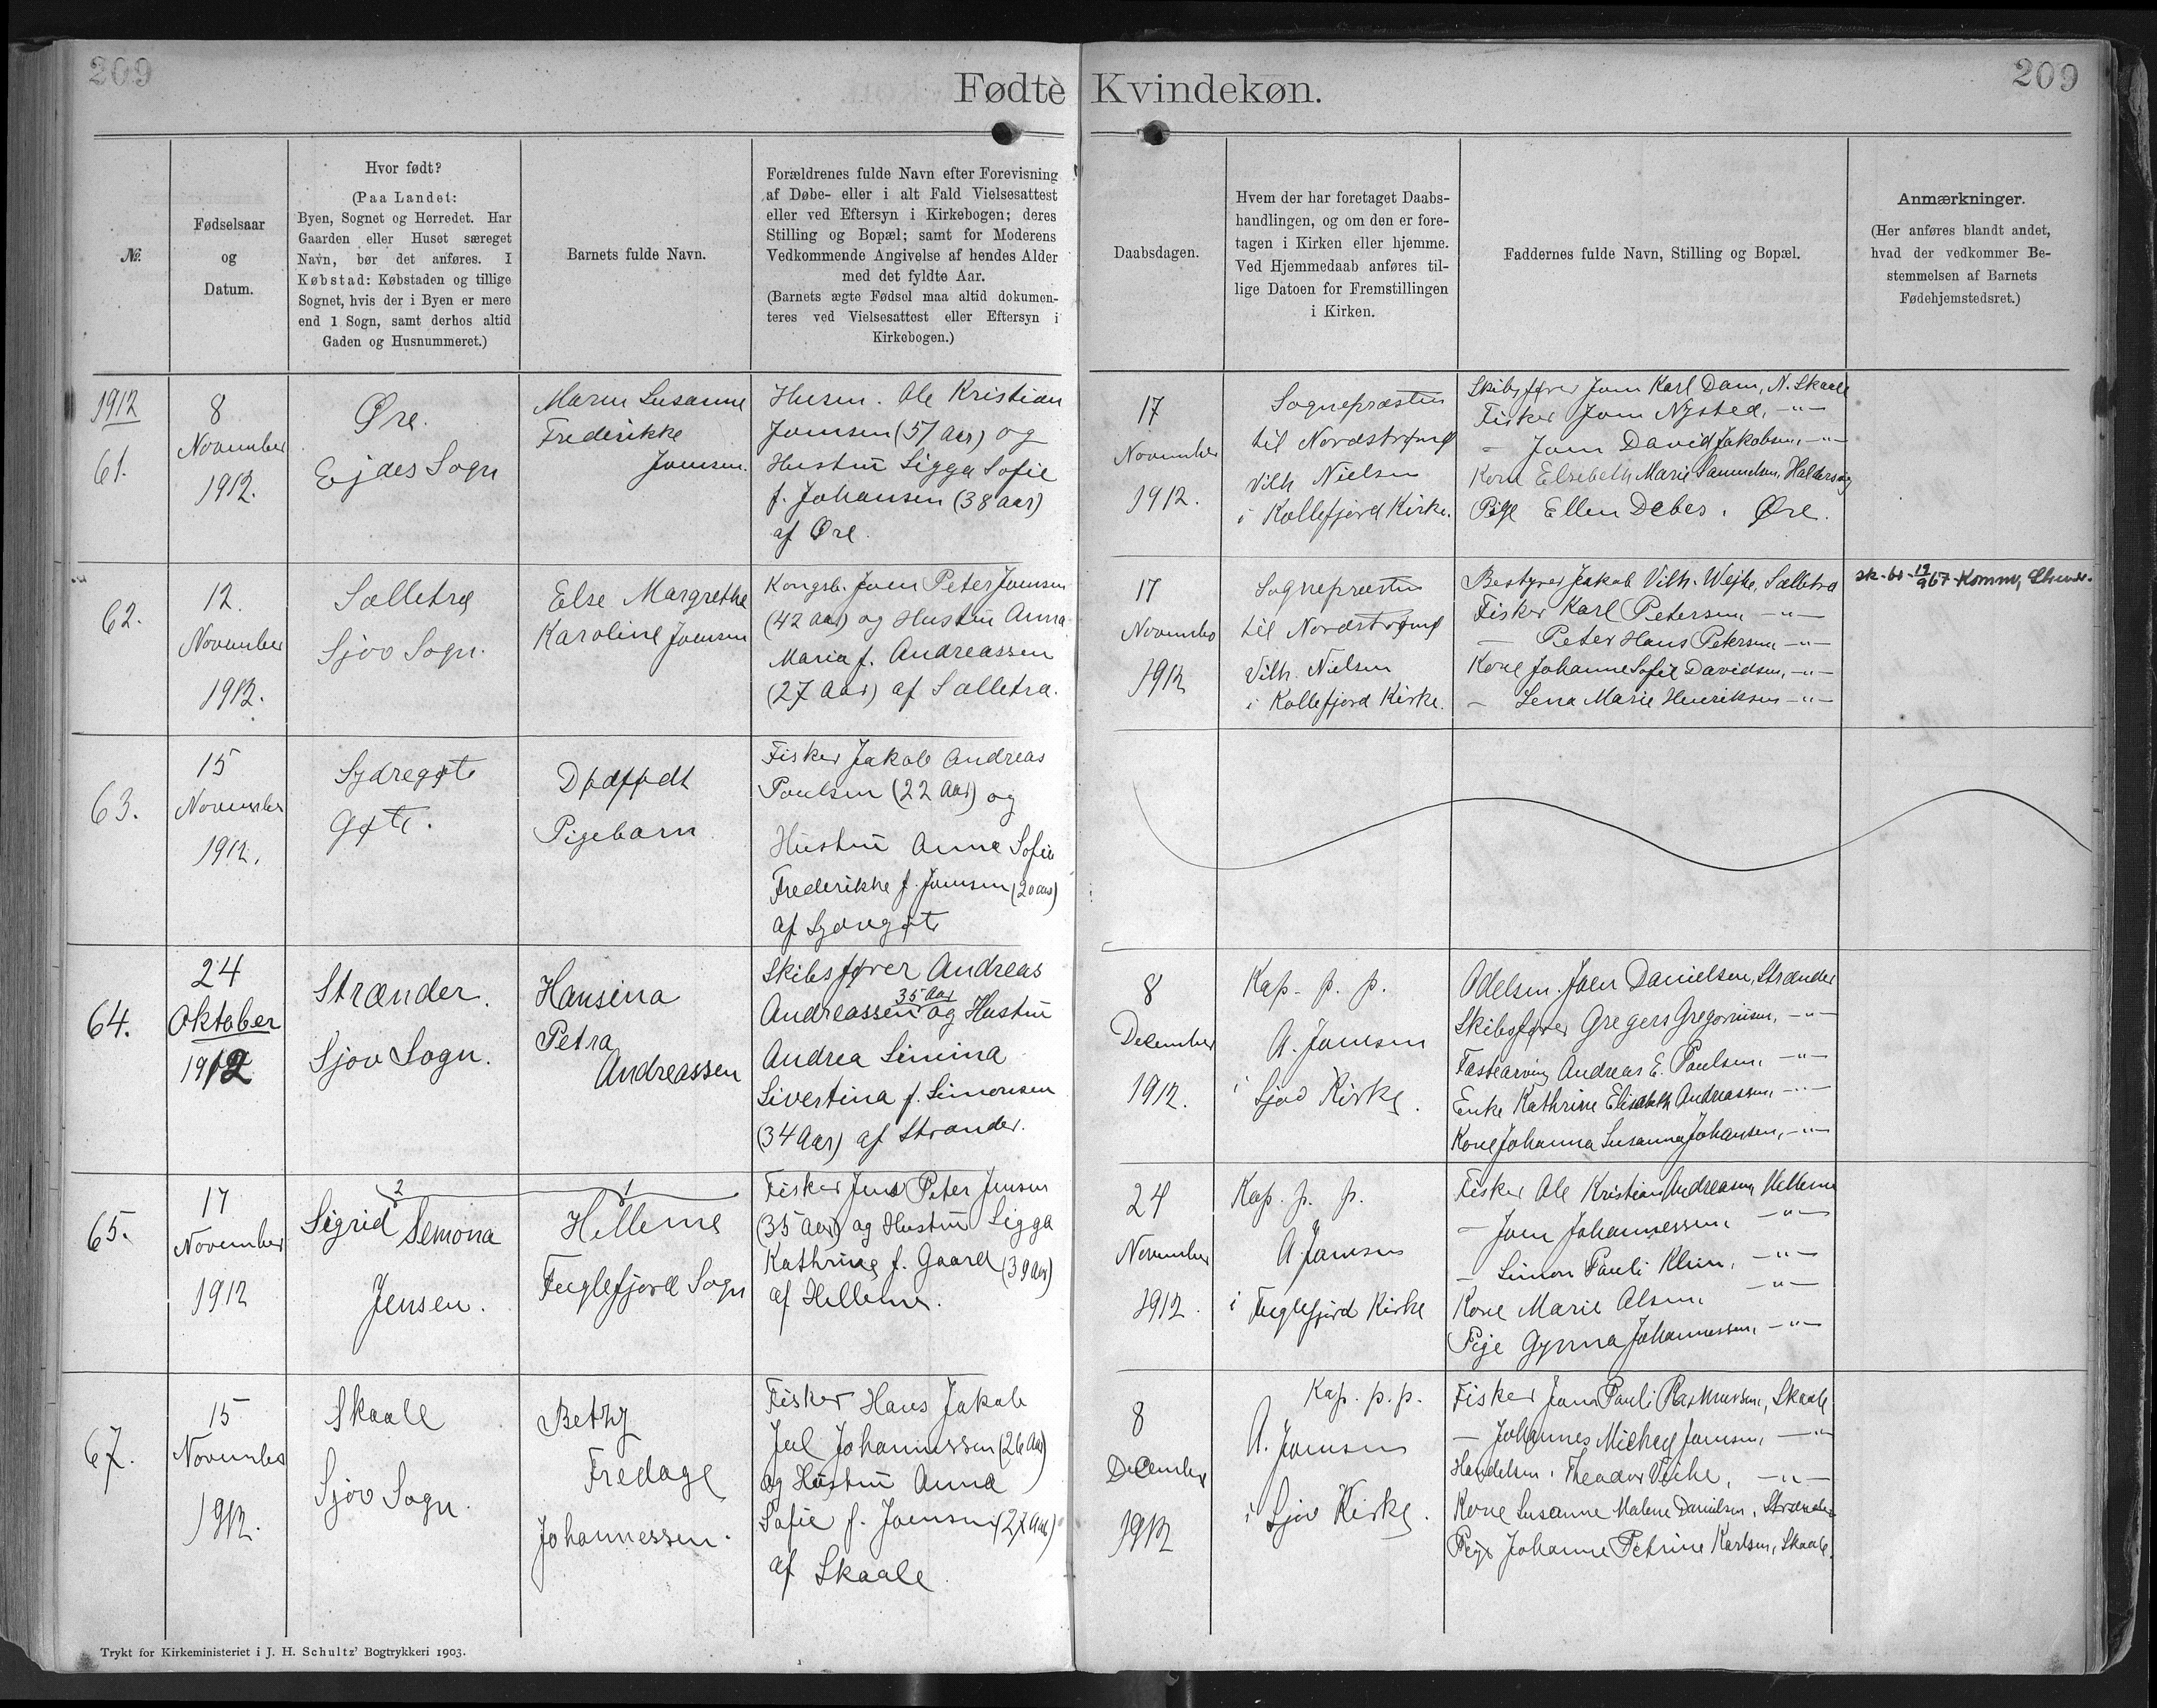 209
209
Fødte Kvindekøn.
№.
Fødselsaar
og
Datum.
Hvor født?
(Paa Landet:
Byen, Sognet og Herredet. Har
Gaarden eller Huset særeget
Navn, bør det anføres. I
Købstad: Købstaden og tillige
Sognet, hvis der i Byen er mere
end 1 Sogn, samt derhos altid
Gaden og Husnummeret.)
Barnets fulde Navn.
Forældrenes fulde Navn efter Forevisning
af Døbe- eller i alt Fald Vielsesattest
eller ved Eftersyn i Kirkebogen; deres
Stilling og Bopæl; samt for Moderens
Vedkommende Angivelse af hendes Alder
med det fyldte Aar.
(Barnets ægte Fødsel maa altid dokumen-
teres ved Vielsesattest eller Eftersyn i
Kirkebogen.)
Daabsdagen.
Hvem der har foretaget Daabs-
handlingen, og om den er fore-
tagen i Kirken eller hjemme.
Ved Hjemmedaab anføres til-
lige Datoen for Fremstillingen
i Kirken.
Faddernes fulde Navn, Stilling og Bopæl.
Anmærkninger.
(Her anføres blandt andet,
hvad der vedkommer Be-
stemmelsen af Barnets
Fødehjemstedsret.)
1912
61.
8
November
1912.
Øre.
Ejdes Sogn
Maren Susanne
Frederikke
Joensen.
Husm. Ole Kristian
Joensen (51 Aar) og
Hustru Sigga Sofie
f. Johansen (38 aar)
af Øre.
17
November
1912.
Sognepræsten
til Nordstrømø
Vilh. Nielsen
i Kollefjord Kirke.
Skibsfører Joen Karl Dam, N. Skaale
Fisker Joen Nysted, -"-
- Joen David Jakobsen, -"-
Kone Elsebeth Marie Samuelsen, Haldarsvig
Pige Ellen Debes. Øre.
62.
12.
November
1912.
Selletræ
Sjov Sogn.
Else Margrethe
Karoline Joensen
Kongsb. Joen Peter Joensen
(42 Aar) og Hustru Anna
Maria f. Andreassen
(27 Aar) af Selletræ.
17
November
1912
Sognepræsten
til Nordstrømø
Vilh. Nielsen
i Kollefjord Kirke.
Bestyrer Jakob Vilh. Wejhe, Selletræ
Fisker Karl Petersen -"-
- Peter Hans Petersen -"-
Kone Johanne Sofie Davidsen, -"-
- Lena Marie Henriksen -"-
63.
15
November
1912.
Sydregøte
Gøte.
Dødfødt
Pigebarn
Fisker Jakob Andreas
Poulsen (22 Aar) og
Hustru Anne Sofie
Frederikke f. Joensen (20 aar)
af Sydregøte
64.
24
Oktober
1912
Strænder.
Sjov Sogn.
Hansina
Petra
Andreassen
Skibsfører Andreas
Andreassen 35 Aar og Hustru
Andrea Simina
Sivertina f. Simonsen
(34 Aar) af Strænder.
8
December
1912.
Kap. p. p.
A. Joensen
i Sjov Kirke.
Odelsm. Joen Danielsen, Strænder
Skibsfører Gregers Gregoriusen, -"-
Fæstearving Andreas E. Poulsen, -"-
Enke Kathrine Elisabeth Andreassen, -"-
Kone Johanna Susanna Johansen, -"-
65.
17
November
1912
2
Sigrid Semona
Jensen.
1
Hellerne
Fuglefjord Sogn
Fisker Jens Peter Jensen
(35 Aar) og Hustru Sigga
Kathrine f. Gaard (39 Aar)
af Hellerne.
24
November
1912.
Kap. p. p.
A. Joensen
i Fuglefjord Kirke
Fisker Ole Kristian Andreasen, Hellerne
- Joen Johannessen, -"-
- Simon Pauli Klein, -"-
Kone Marie Olsen, -"-
Pige Gynna Johannessen, -"-
67.
15
November
1912.
Skaale
Sjov Sogn.
Betzy
Fredage
Johannessen.
Fisker Hans Jakob
Juel Johannessen (26 Aar)
og Hustru Anna
Sofie f. Joensen (27 Aar)
af Skaale.
8
December
1912
Kap. p. p.
A. Joensen
i Sjov Kirke.
Fisker Joen Pauli Rasmussen, Skaale
- Johannes Michael Joensen, -"-
Handelsm. Theodor Weihe, -"-
Kone Susanne Malene Danielsen, Strænder
Pige Johanne Petrine Karlsen, Skaale.
Trykt for Kirkeministeriet i J. H. Schultz' Bogtrykkeri 1903.